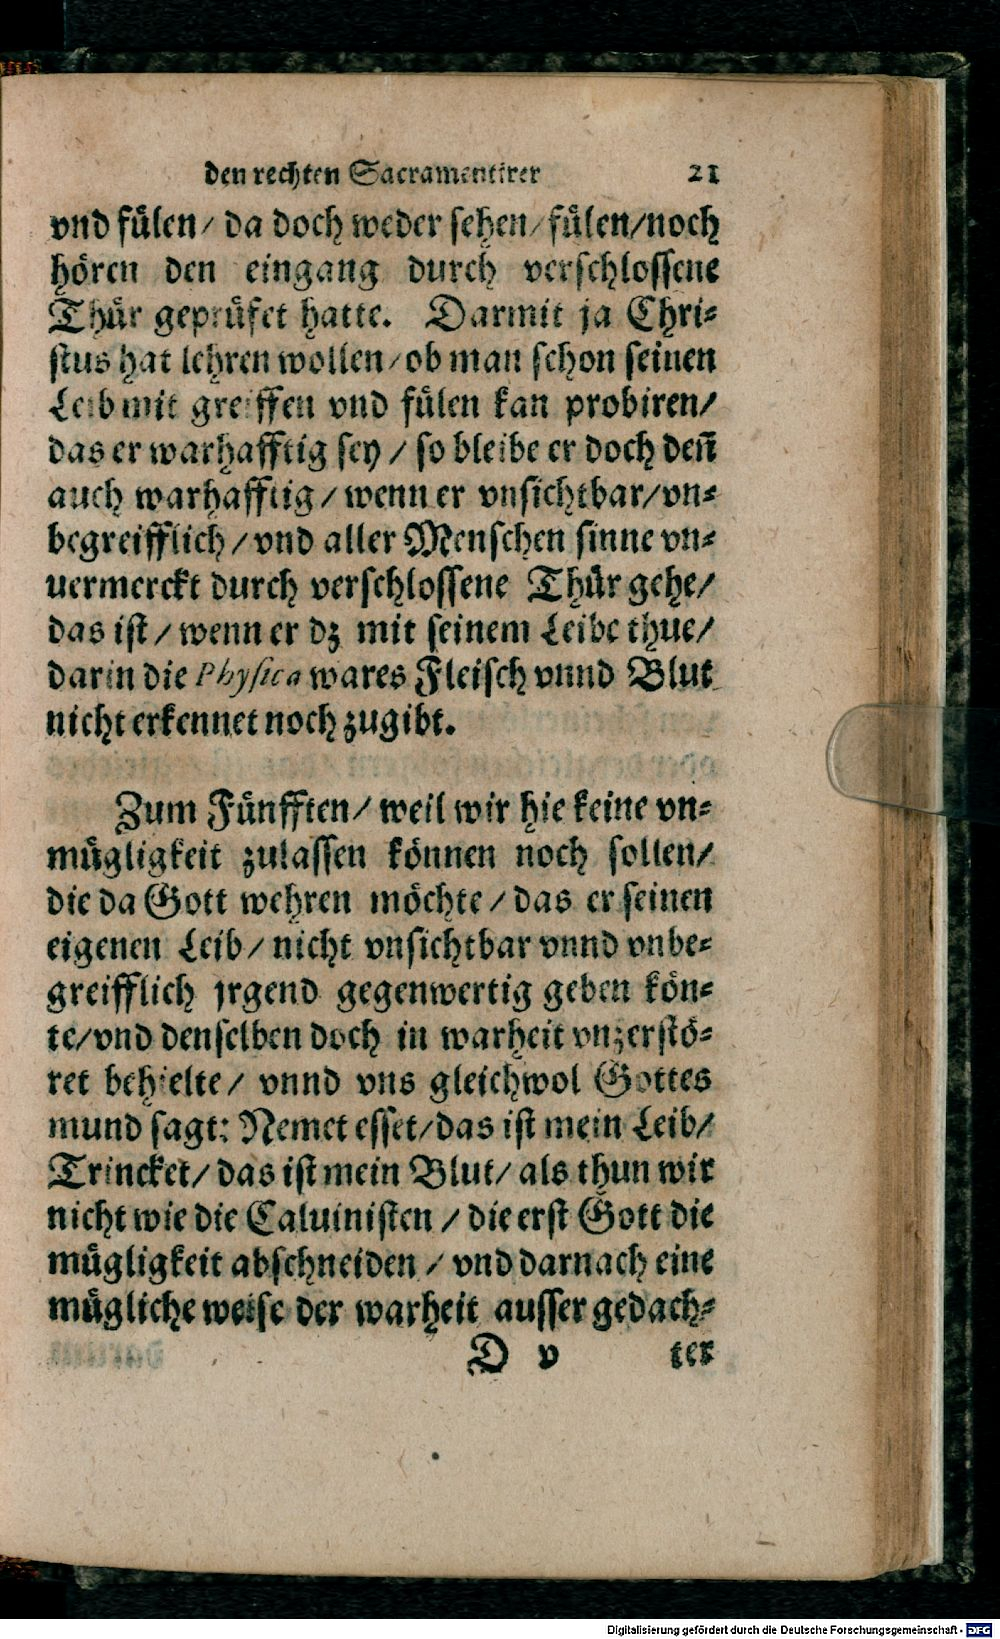 den rechten Sacramentirer 21
vnd fülen/ da doch weder sehen/ fülen/noch
hören den eingang durch verschlossene
Thür geprüfet hatte. Darmit ja Chri⸗
stus hat lehren wollen/ ob man schon seinen
Leib mit greiffen vnd fülen kan probiren/
das er warhafftig sey / so bleibe er doch deñ
auch warhafftig / wenn er vnsichtbar/vn⸗
begreifflich / vnd aller Menschen sinne vn⸗
uermerckt durch verschlossene Thür gehe/
das ist / wenn er dz mit seinem Leibe thue/
darin die Physica wares Fleisch vnnd Blut
nicht erkennet noch zugibt.
Zum Fünfften/ weil wir hie keine vn⸗
mügligkeit zulassen können noch sollen/
die da Gott wehren möchte / das er seinen
eigenen Leib / nicht vnsichtbar vnnd vnbe⸗
greifflich jrgend gegenwertig geben kön⸗
te/vnd denselben doch in warheit vnzerstö⸗
ret behielte / vnnd vns gleichwol Gottes
mund sagt: Nemet esset/das ist mein Leib/
Trincket/ das ist mein Blut/ als thun wir
nicht wie die Caluinisten / die erst Gott die
mügligkeit abschneiden / vnd darnach eine
mügliche weise der warheit ausser gedach⸗
D v ter
Digitalisierung gefördert durch die Deutsche Forschungsgemeinschaft - DFG